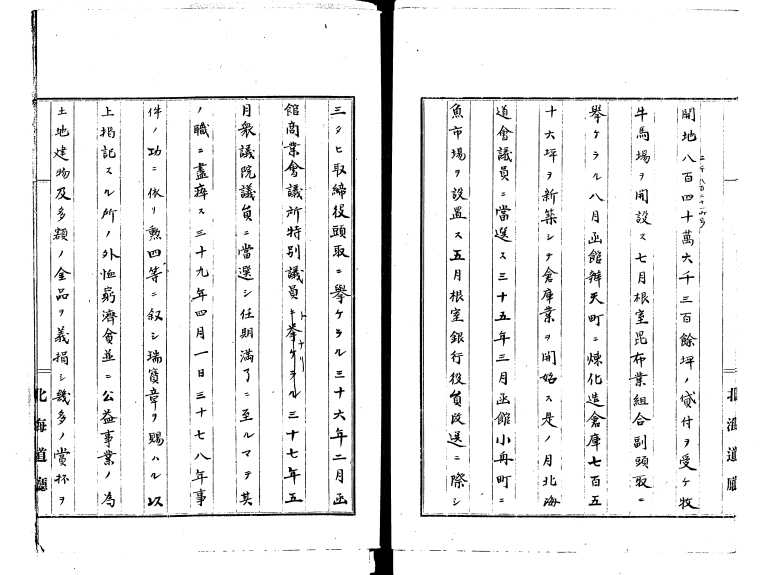 開地八百四十萬六千三百餘坪ノ貸付ヲ受ケ牧
牛馬場ヲ開設ス七月根室昆布業組合副頭取ニ
擧ケラル八月函館辨天町ニ煉化造倉庫七百五
十六坪ヲ新築シテ倉庫業ヲ開始ス是ノ月北海
道會議員ニ當選ス三十五年三月函館小舟町ニ
魚市場ヲ設置ス五月根室銀行役員改選ニ際シ
北海道廳
三タヒ取締役頭取ニ擧ケラル三十六年二月函
館商業會議所特別議員トナリ三十七年五
月衆議院議員ニ當選シ任期滿了ニ至ルマテ其
ノ職ニ盡瘁ス三十九年四月一日三十七八年事
件ノ功ニ依リ勲四等ニ叙シ瑞寶章ヲ賜ハル以
上揭記スル所ノ外恤窮濟會並ニ公益事業ノ為
土地建物及多額ノ金品ヲ義捐シ幾多ノ賞杯ヲ
北海道廳